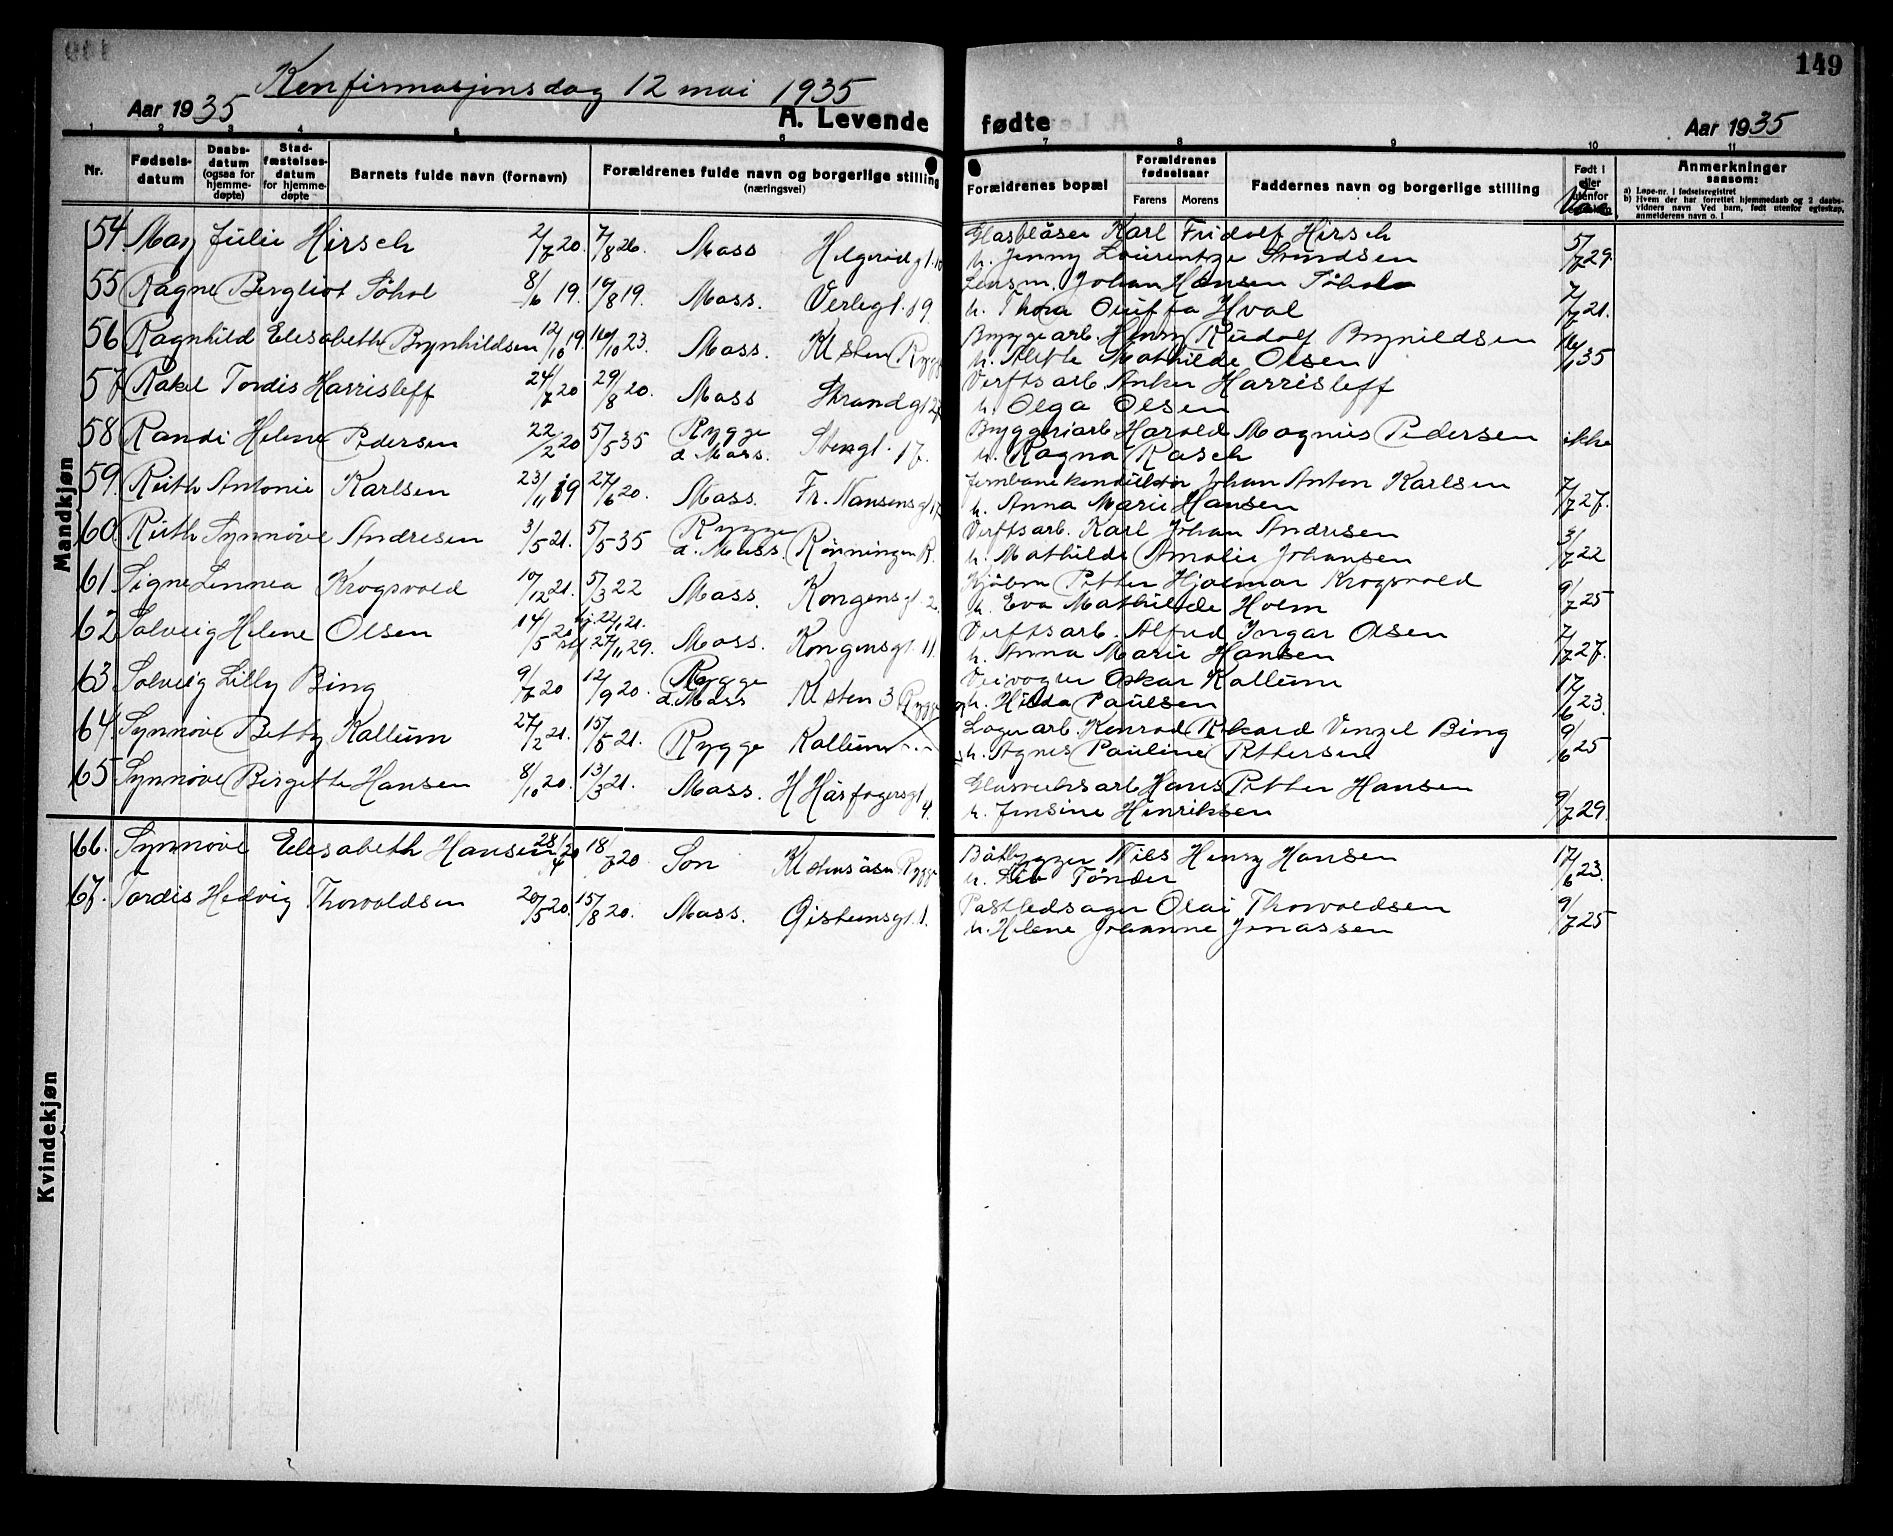 149
Konfirmasjonsdag 12 mai 1935
Aar 1935
A. Levende fødte
Aar 1935
1 2 3 4 5 6 7 8 9 10 11
Nr.
Fødsels-datum
Daabs-datum (ogsaa for hjemme-døpte)
Stad-fæstelses-datum for hjemme-døpte
Barnets fulde navn (fornavn)
Forældrenes fulde navn og borgerlige stilling (næringsvei)
Forældrenes bopæl
Forældrenes fødselsaar
Farens Morens
Faddernes navn og borgerlige stilling
Født i eller utenfor
Vac.
Anmerkninger saasom:
a) Løpe-nr. i fødselsregistret
b) Hvem der har forrettet hjemmedaab og 2 daabs-vidners navn Ved barn, født utenfor egteskap, anmelderens navn o. l
Mandkjøn
Kvindekjøn
54 May Julie Hirsch 2/7 20. 7/8 26. Moss Helgerødgt. 10 Glasblåser Karl Fridolf Hirsch 5/7 29.
h. Jenny Laurentze Svendsen
55 Ragne Bergliot Søhol 8/6 19. 19/8 19. Moss. Verlegt. 19. Lensm. Johan Hansen Søhol
h. Thora Oluffa Hval 7/7 21.
56 Ragnhild Elisabeth Brynhildsen 12/10 19. 16/10 23. Moss. Klosten Rygge Bryggearb. Henry Rudolf Brynildsen 16/1 35
h. Alette Mathilde Olsen
57 Rakel Tordis Harrisleff 24/7 20 29/8 20. Moss Strandgt 27 Verftsarb. Anker Harrisleff
h. Olga Olsen
58 Randi Helene Pedersen 22/2 20 5/5 35 Rygge d. Moss. Stengt. 17. Bryggeriarb. Harald Magnus Pedersen ikke
h. Ragna Rasch
59. Ruth Antonie Karlsen 23/11 19 27/6 20. Moss. Fr. Nansensgt 17 Jernbanekonduktør Johan Anton Karlsen
h. Anna Marie Hansen 7/7 27.
60 Ruth Synnøve Andresen 3/5 21. 5/5 35 Rygge d. Moss. Rønningen R. Verftsarb. Karl Johan Andresen
h. Mathilde Amalie Johansen 3/7 22
61 Signe Linnea Krogsvold 10/12 21. 5/3 22 Moss. Kongensgt. 2. Kjøbm Petter Hjalmar Krogsvold
h. Eva Mathilde Holm 9/7 25
62 Solveig Helene Olsen 14/5 20 hj. 22/1 21. stf 27/11 29. Moss. Kongensgt. 11. Verftsarb. Alfred Ingar Olsen
h. Anna Marie Hansen 7/7 27.
63 Solveig Lilly Bing 9/7 20 12/9 20. Rygge d. Moss Klosten 3 Rygge Veivogter Oskar Kallum
h. Hilda Paulsen 17/6 23.
64 Synnøve Betty Kallum 27/2 21. 15/5 21. Rygge Kallum -.- Lagerarb. Konrad Rikard Vinzel Bing
h. Agnes Pauline Pettersen 9/6 25
65 Synnøve Birgitte Hansen 8/10 20. 13/3 21. Moss. H Hårfagersgt. 4. Glasverksarb Hans Petter Hansen
h. Jensine Henriksen 9/7 29.
66. Synnøve Elisabeth Hansen 28/4 20 18/7 20 Son Klostensåsen Rygge Båtbygger Nils Henry Hansen 17/6 23.
h. Liv Tønder
67. Tordis Hedvig Thorvaldsen 20/5 20. 15/8 20. Moss. Gistumsgt. 1. Postledsager Olai Thorvaldsen 9/7 25
h. Helene Johanne Jonassen